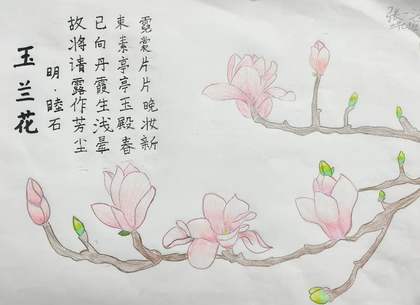 霓裳片片晚妆新
束素亭亭玉殿春
已向丹霞生浅晕
故将清露作芳尘
明·睦石
玉兰花